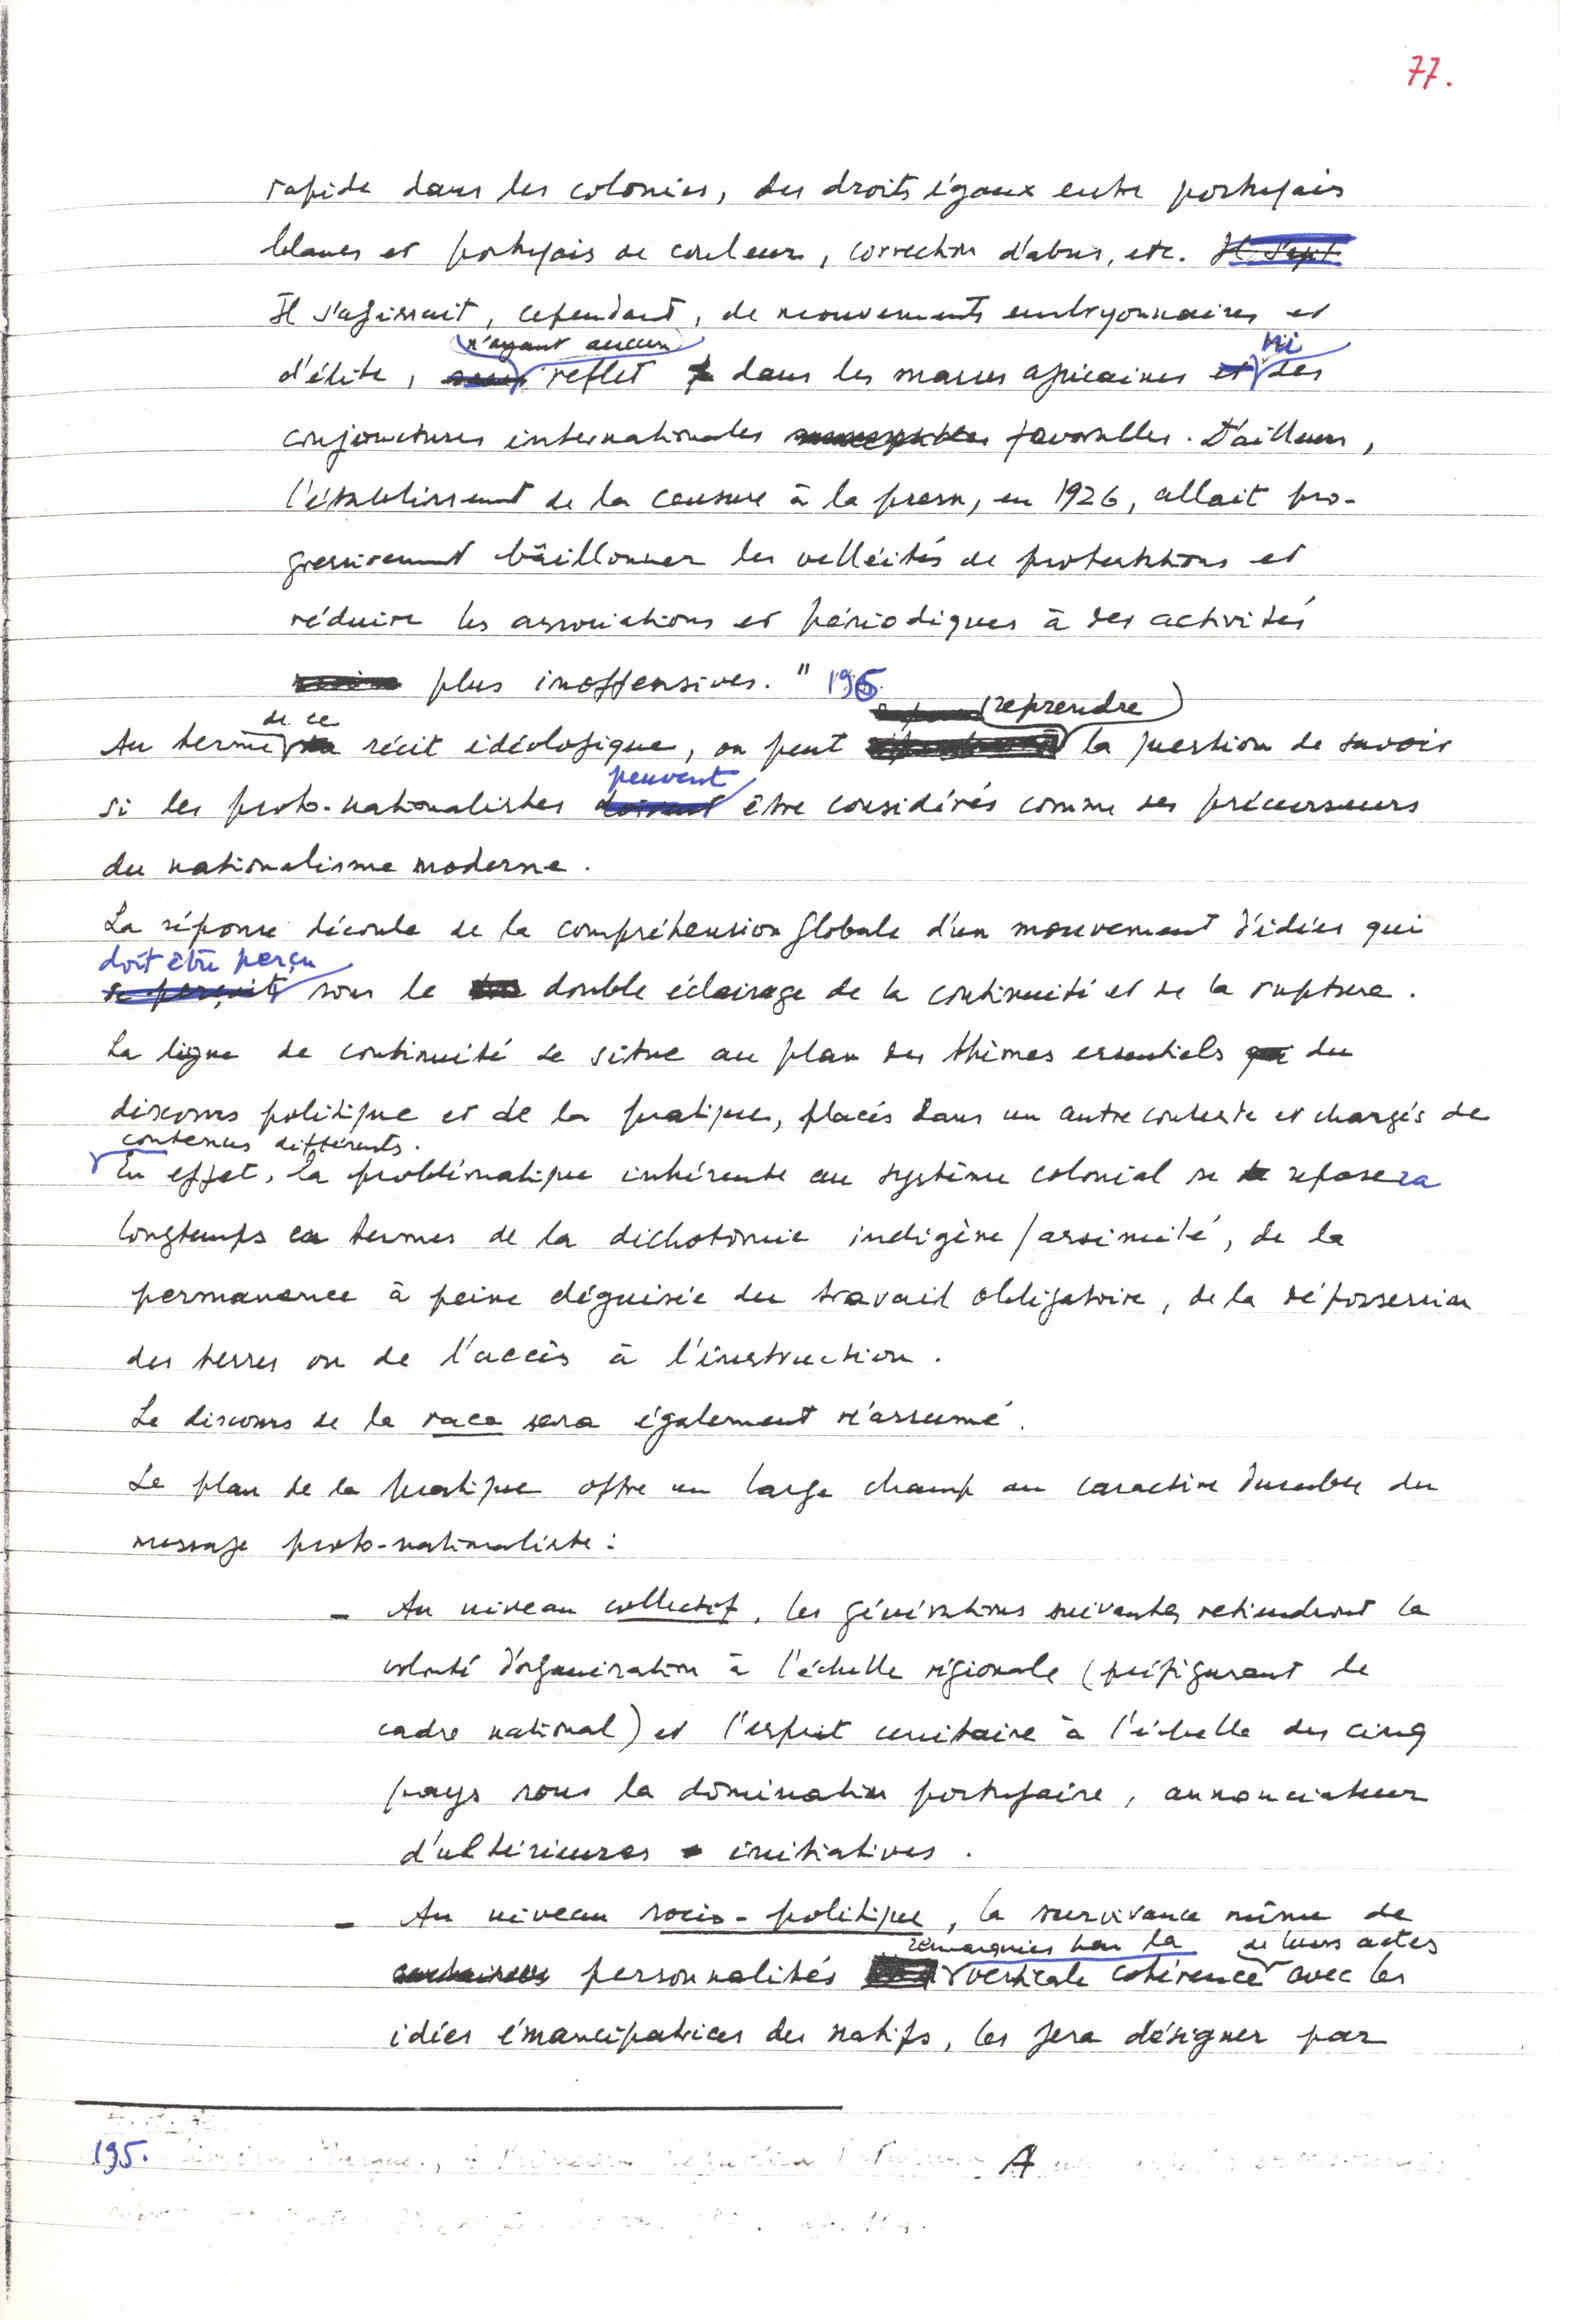 77.
rapide dans les colonies, des droits égaux entre portugais
blancs et portugais de couleur, correction d'abus, etc. Il s'agit
Il s'agissait, cependant, de mouvements embryonnaires et
n'ayant aucun ni
d'élite, sans reflet dans les masses africaines et des
conjonctures internationales favorables. D'ailleurs,
l'établissement de la censure à la presse, en 1926, allait pro-
gressivement bâillonner les velléités de protestations et
réduire les associations et périodiques à des activités
plus inoffensives." 195
reprendre
de ce
Au terme récit idéologique, on peut la question de savoir
peuvent
si les proto-nationalistes doivent être considérés comme des précurseurs
du nationalisme moderne.
La réponse découle de la compréhension globale d'un mouvement d'idées qui
doit être perçu
se perçoit sous le double éclairage de la continuité et de la rupture.
La ligne de continuité se situe au plan des thèmes essentiels du
discours politique et de la pratique, placés dans un autre contexte et chargés de
contenus différents.
En effet, la problématique inhérente au système colonial se reposera
longtemps en termes de la dichotomie indigène/assimilé, de la
permanence à peine déguisée du travail obligatoire, de la dépossession
des terres ou de l'accès à l'instruction.
Le discours de la race sera également réassumé.
Le plan de la pratique offre un large champ au caractère durable du
message proto-nationaliste:
- Au niveau collectif, les générations suivantes retiendront la
volonté d'organisation à l'échelle régionale (préfigurant le
cadre national) et l'esprit unitaire à l'échelle des cinq
pays sous la domination portugaise, annonciateur
d'ultérieures initiatives.
- Au niveau socio-politique, la survivance même de
remarquées par la de leurs actes
certaines personnalités verticale cohérence avec les
idées émancipatrices des natifs, les fera désigner par
195. A